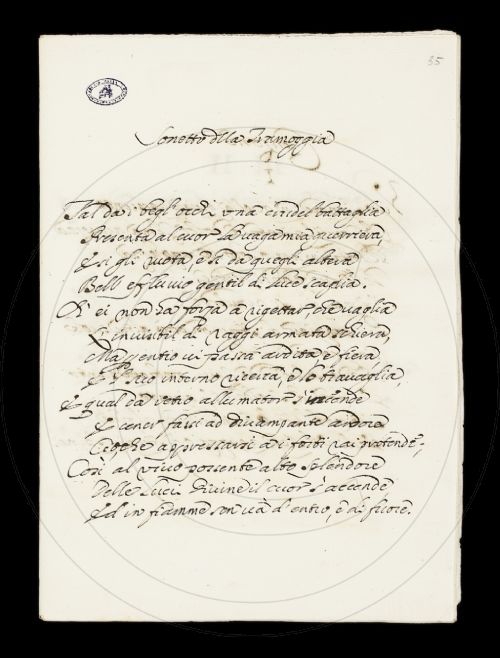 35
Sonetto della Tramoggia
Tal da i begl' occhi una crudel battaglia
Presenta al cuor la vaga mia guerriera,
E sì gli vuota, e sì da quegli altera
Bell' effluvio gentil di luce scaglia.
Ch' ei non ha forza a rigettar, che vaglia
L' invisibil di raggi armata schiera,
Ma dentro vi passa ardita, e fiera
E l' suo interno ricerca, e lo travaglia,
E qual da vetro allumator s' incende
E cener fassi ad divampante ardore
Ciò che appressarsi a i forbi rai pretende,
Così al vivo possente alto splendore
Delle luci divine il cuor s' accende
Ed in fiamme sen và d' entro, e di fuore.